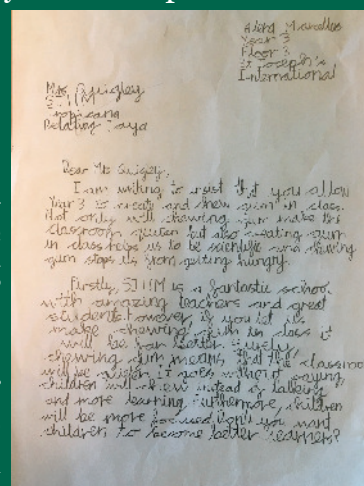 Year 3
Floor 3
St Joseph's
International
Mrs Quigley
Tropicana
Petaling Jaya
Dear Mrs Quigley,
I am writing to insist that you allow
Year 3 to create and chew gum in class.
Not only will chewing gum make the
classroom quieter but also creating gum
in class helps us to be scientific and chewing
gum stops us from getting hungry.
Firstly, is a fantastic school
with amazing teachers and great
students. however, if you let us
make chewing gum in class it
will be far better. Surely,
chewing gum means that the classroo
will be it goes without saying,
children will chew instead of talking
and more learning. Furthermore, children
will be more focused. Don't you want
children to become better learners?